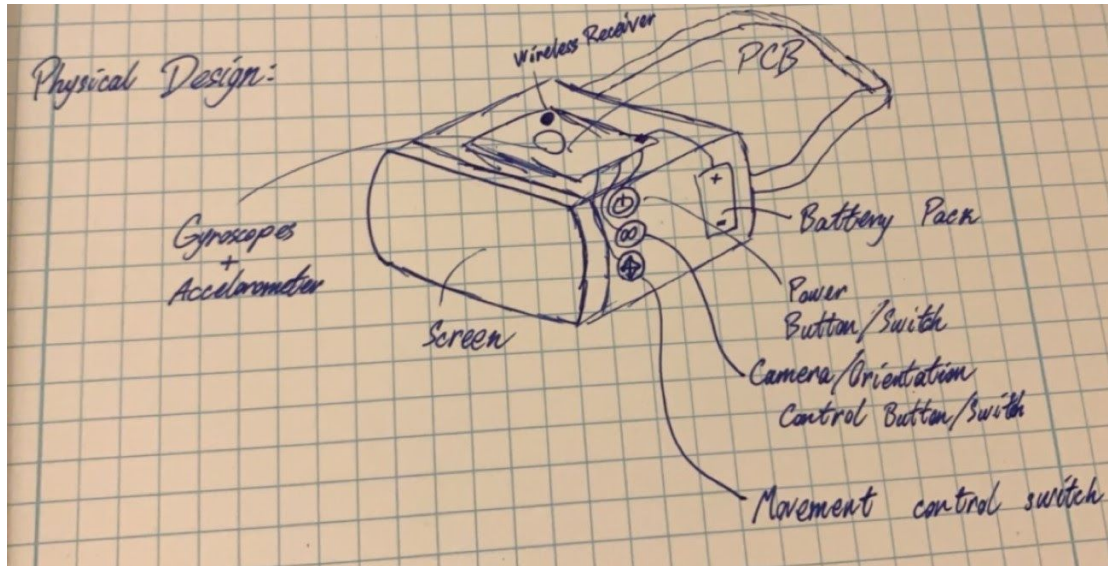 Physical Design:
Wireless Receiver
PCB
Gyroscopes
+
Accelarometer
Screen
+
-
Battery Pack
Power
Button/Switch
Camera/Orientation
Control Button/Switch
Movement control switch